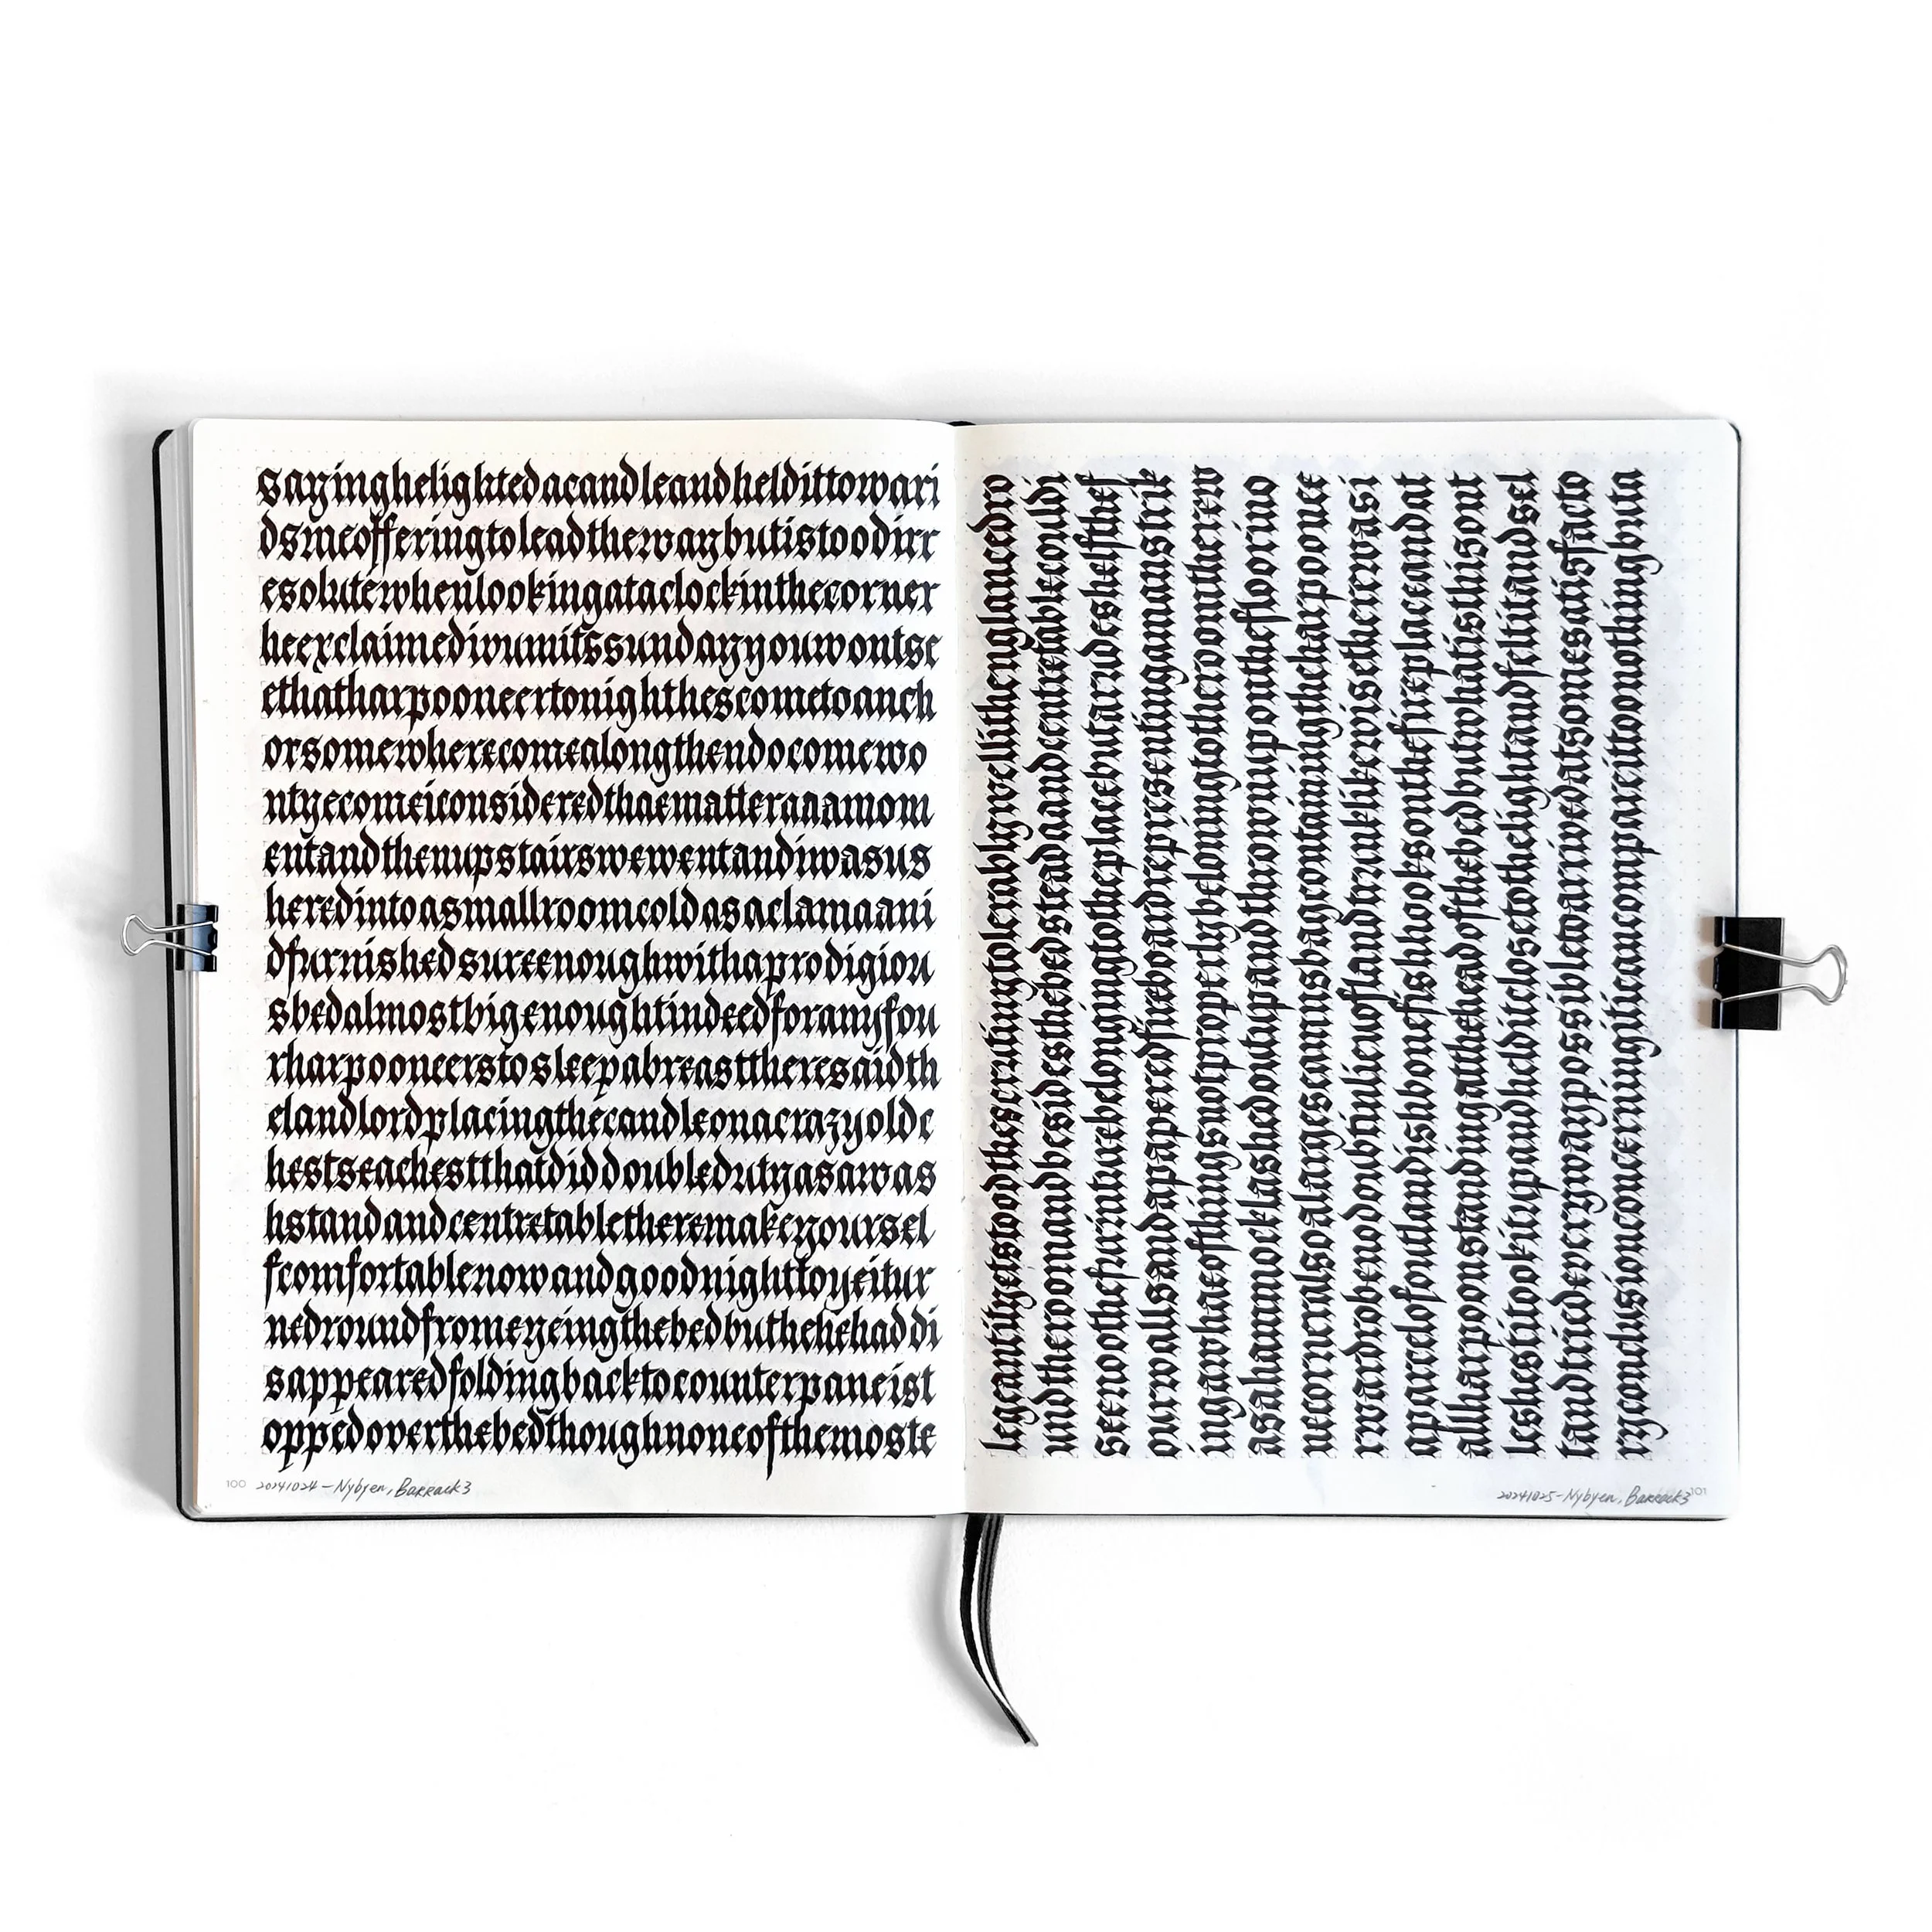 sayinghelightedacandleandheldittowari
dsmeofferingtoleadthewaybutistoodirr
esolutewhenlookingataclockinthecorner
heexclaimedivumitssundayyouwontse
ethatharpooneertonighthescometoanch
orsomewherecomealongthendocomewo
ntyecomeiconsideredthaematteraaamom
entandthenupstairswewentandiwasus
heredintoasmallroomcoldasaclamaani
dfurnishedsureenoughwithaprodigiou
sbedalmostbigenoughtindeedforanyfou
rharpooneerstosleepabreasttheresaidth
elandlordplacingthecandleonacrazyoldc
hestseachestthatdiddoubledutyasawas
hstandandcentretabletheremakeyoursel
fcomfortablenowandgoodnighttoyeitur
nedroundfromeyeingthebedbuthehehaddi
sappearedfoldingbacktocounterpaneist
oppedoverthebedthoughnoneofthemoste
100 20241024-Nybyen, Barrack3
legeantityetstoodthescrutinytolerablywellithenglancedro
undtheroomandbesidesthebedsteadaandcentretablecouldi
seenootthefurniturebelongingtotheplacebutarudeshelfthef
ourwallsandapaperedfireboardrepresentingamanstrik
ingawhaeofthingsnotproperlybeloningtotheroomtherew
asahammocklashedoutupandthrownuponthefloorino
necorneralsoalargeseamansbagcontainingtheharpoonee
rswardrobenodoubtinlieuoflandtrunklikewisetherewasi
aparcelofoutlandishbonefishhooksonthefireplaceandat
allharpoonstandingattheheadofthebedbutwhatisthisont
leshestitookitupandhelditclosetothelightandfeltitandsel
tandtriedeverywaypossibletoarriveatsomesatisfacto
ryconclusionconcerningiticancompareittoonothingbuta
20241025-Nybyen, Barrack3 101